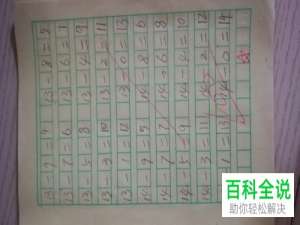 13-9=4 13-8=5
13-7=6 13-6=7
13-5=8 13-4=9
13-3=10 13-2=11
13-1=12 13-0=13
14-9=5 14-8=6
14-7=7 14-6=8
14-5=9 14-4=10
14-3=11 14-2=12
14-1=13 14-0=14
百科全说
助你轻松解决